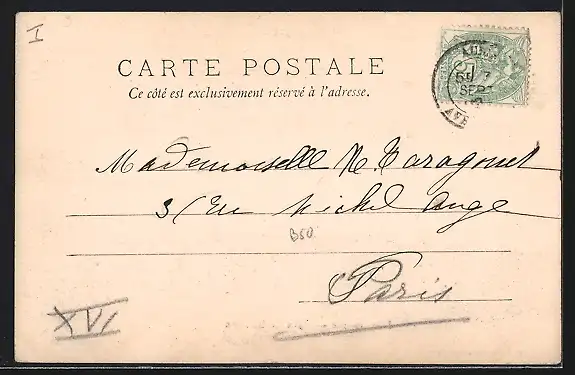 I
CARTE POSTALE
Ce côté est exclusivement réservé à l'adresse.
SEPT
Mademoiselle
3 rue Michel Ange
B50
Paris
XVI